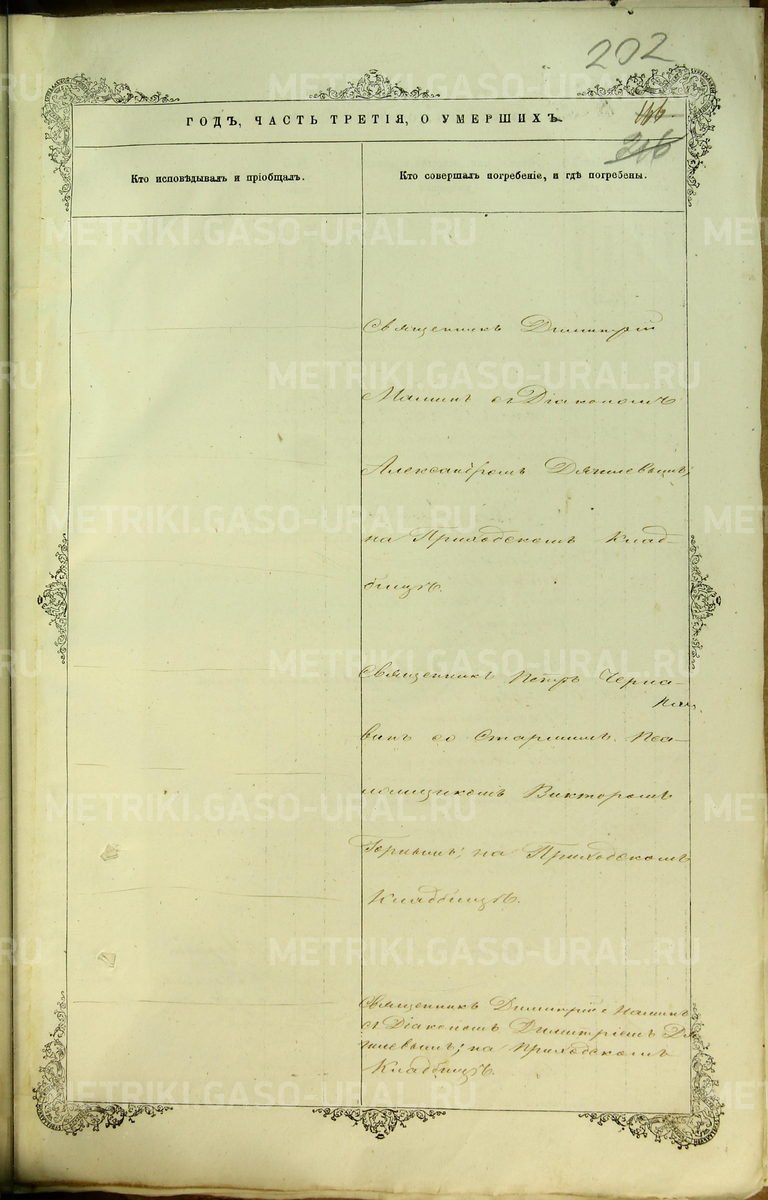 202
146
246
ГОДЪ, ЧАСТЬ ТРЕТІЯ, О УМЕРШИХЪ.
Кто исповѣдывалъ и пріобщалъ.
Кто совершалъ погребеніе, и гдѣ погребены.
Священникъ Димитрій
съ Діакономъ
Александромъ
на Приходскомъ Клад-
бищѣ.
Священникъ Петръ Черна-
винъ со Старшимъ Пса-
ломщикомъ Викторомъ
на Приходскомъ
Кладбищѣ.
Священникъ Димитрій
съ Діакономъ Димитріемъ
на Приходскомъ
Кладбищѣ.
METRIKI.GASO-URAL.RU